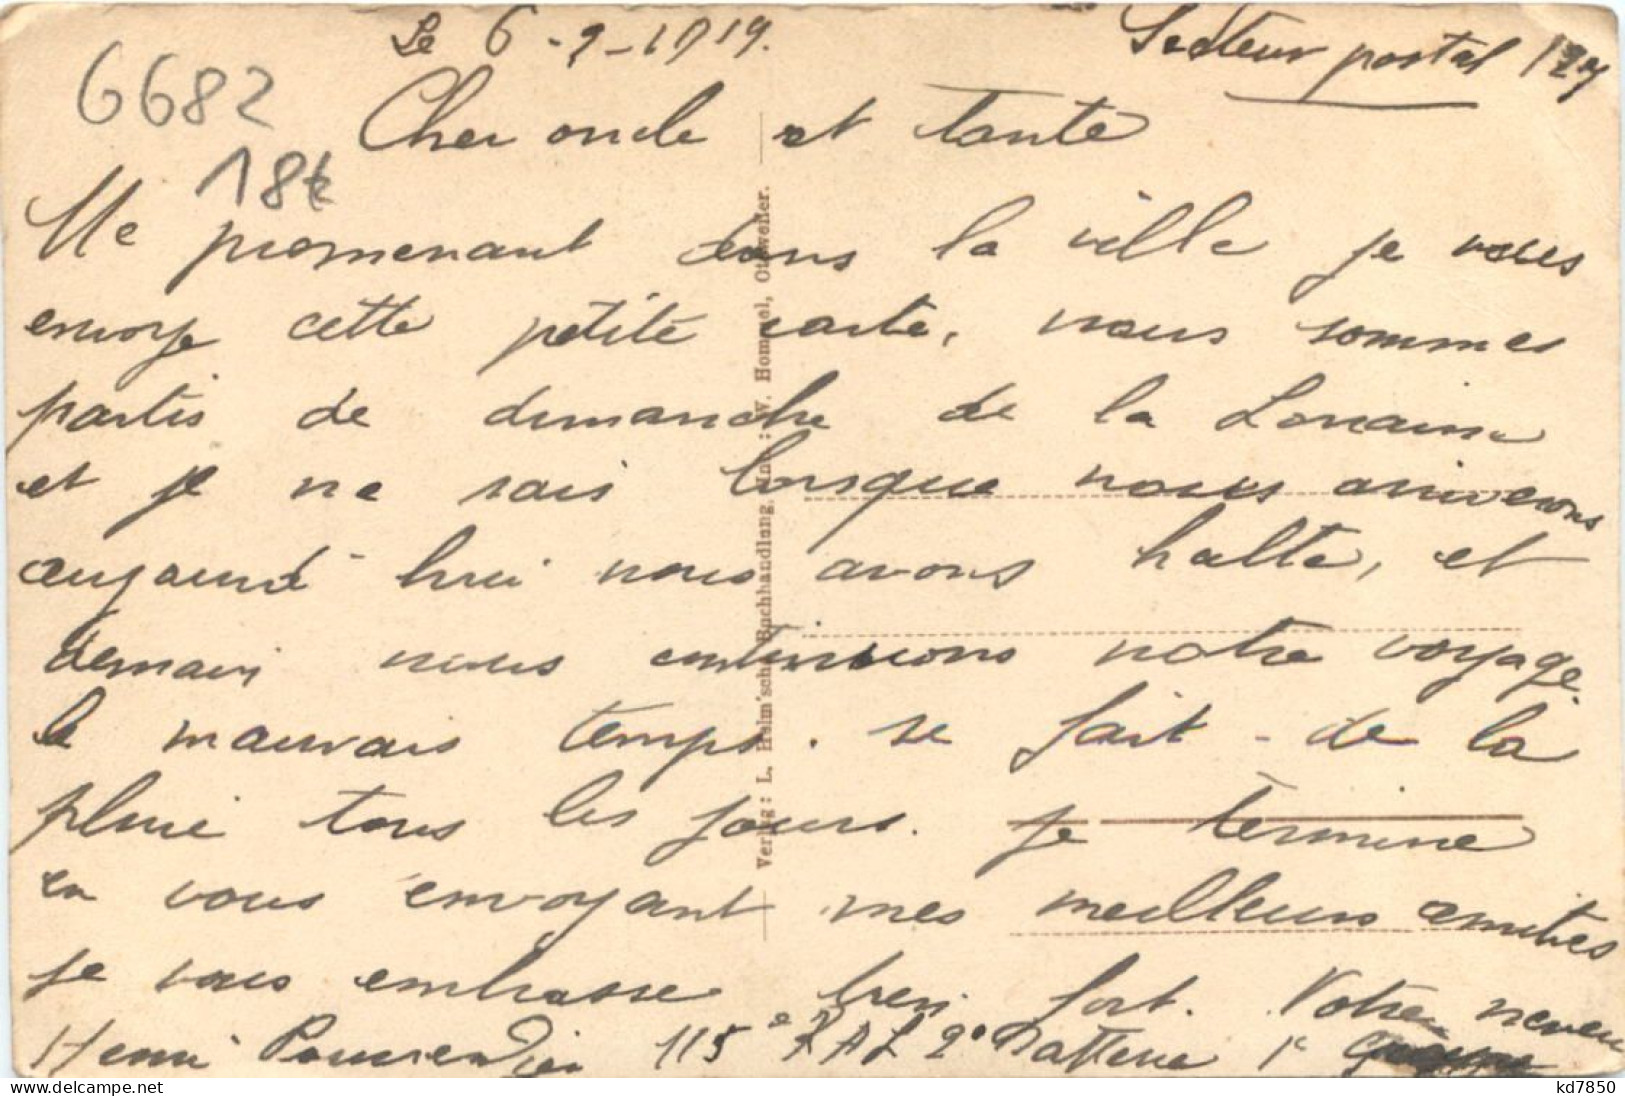 Le 6-2-1919.
Secteur postal
6682
18€
Cher oncle et tante
Me promenant dans la ville je vous
envoye cette petite carte, nous sommes
partis de dimanche de la Lorraine
et je ne sais lorsque nous arriverons
aujourd'hui nous avons halte, et
demain nous continuons notre voyage.
le mauvais temps. se fait - de la
pluie tous les jours. je termine
en vous envoyant mes meilleurs amitiés
je vous embrasse bien fort. Votre neveu
Henri 115e RAL 2e Batterie 1e
Verlag: L. Halm'sche Buchhandlung, Inh.: W. Hommel, Ottweiler.
kd7850